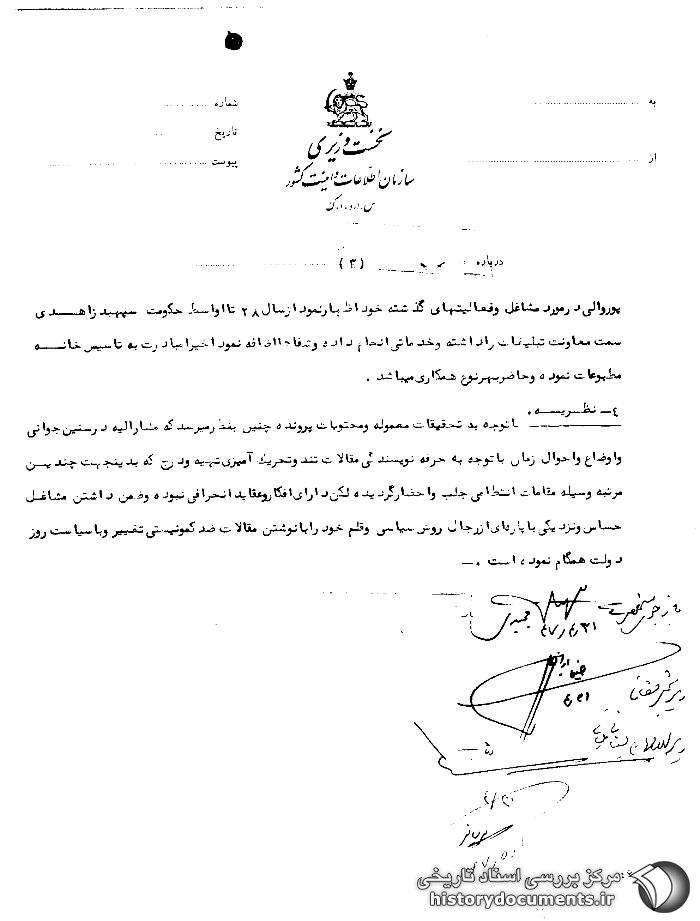 به
شماره
تاریخ
از
پیوست
نخست وزیری
سازمان اطلاعات و امنیت کشور
س.ا.و.ا.ک
درباره
(۳)
پوروالی در مورد مشاغل و فعالیتهای گذشته خود اظهار نمود از سال ۲۸ تا اواسط حکومت سپهبد زاهدی
سمت معاونت تبلیغات را داشته و خدماتی انجام داده و اضافه نمود اخیرا مبادرت به تاسیس خانه
مطبوعات نموده و حاضر بهر نوع همکاری میباشد .
٤ـ نظریه . با توجه به تحقیقات معموله و محتویات پرونده چنین بنظر میرسد که مشارالیه در سنین جوانی
و اوضاع و احوال زمان با توجه به حرفه نویسندگی مقالات تند و تحریک آمیزی تهیه و درج که بدینجهت چندین
مرتبه وسیله مقامات انتظامی جلب و احضار گردیده لکن دارای افکار و عقاید انحرافی نبوده و ضمن داشتن مشاغل
حساس و نزدیکی با پاره‌ای از رجال روش سیاسی و قلم خود را با نوشتن مقالات ضد کمونیستی تغییر و با سیاست روز
دولت همگام نموده است .ـ
۴۷/۴/۳۱
۴/۳۱
مرکز بررسی اسناد تاریخی
historydocuments.ir